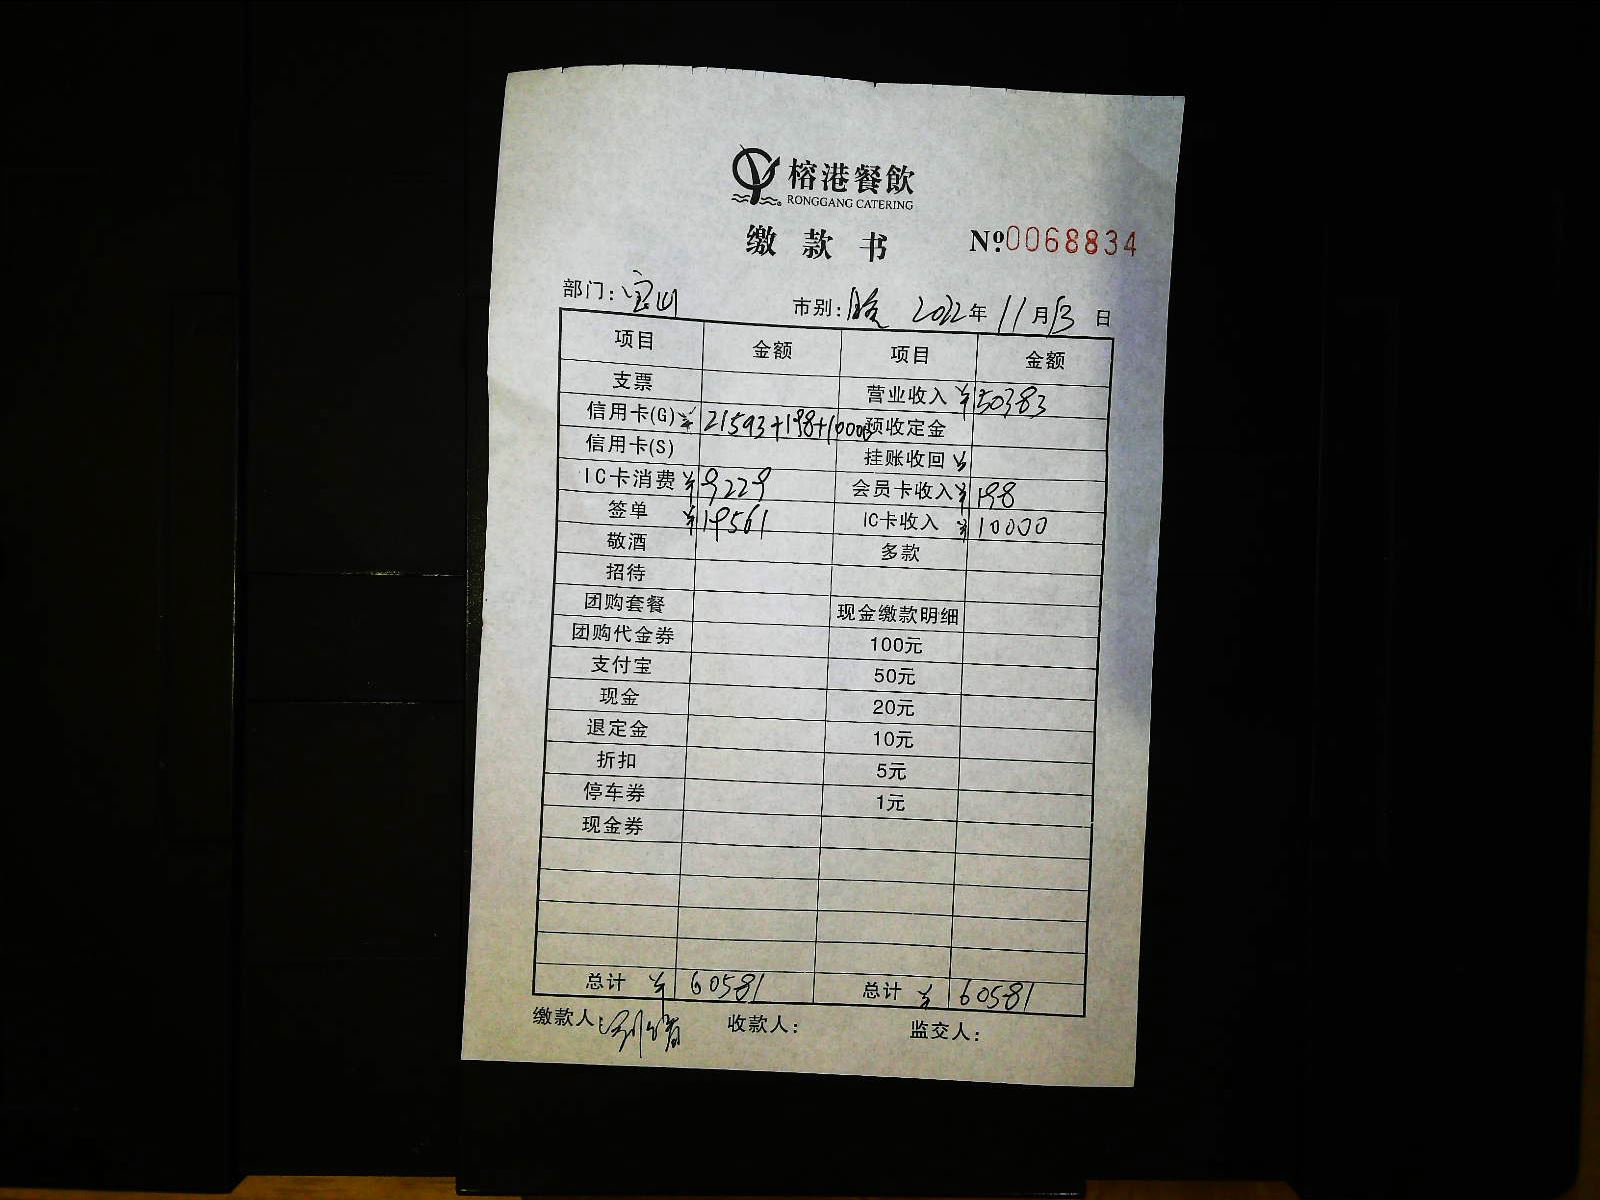 榕港餐飲
RONGGANG CATERING
缴款书 №0068834
部门：宝山 市别：晚 2022年11月13日
项目 金额 项目 金额
支票 营业收入 ¥50383
信用卡(G) ¥21593+198+10000 预收定金
信用卡(S) 挂账收回 ¥
IC卡消费 ¥9229 会员卡收入 ¥198
签单 ¥19561 IC卡收入 ¥10000
敬酒 多款
招待
团购套餐 现金缴款明细
团购代金券 100元
支付宝 50元
现金 20元
退定金 10元
折扣 5元
停车券 1元
现金券
总计 ¥60581 总计 ¥60581
缴款人： 收款人： 监交人：